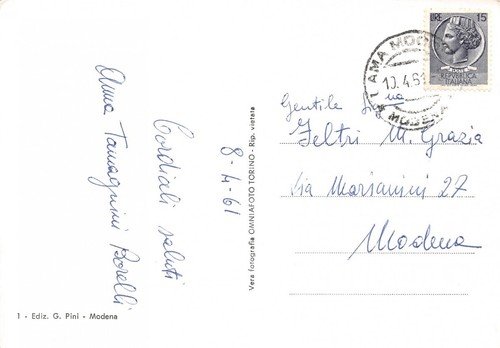 Anna Tamagnini Borelli
Cordiali saluti
8-4-61
Vera fotografia OMNIAFOTO TORINO - Rip. vietata
1 - Ediz. G. Pini - Modena
LIRE 15
REPUBBLICA
ITALIANA
LAMA MO
10.4.61
MODENA
Gentile S.na
Feltri M. Grazia
Via Marianini 27
Modena